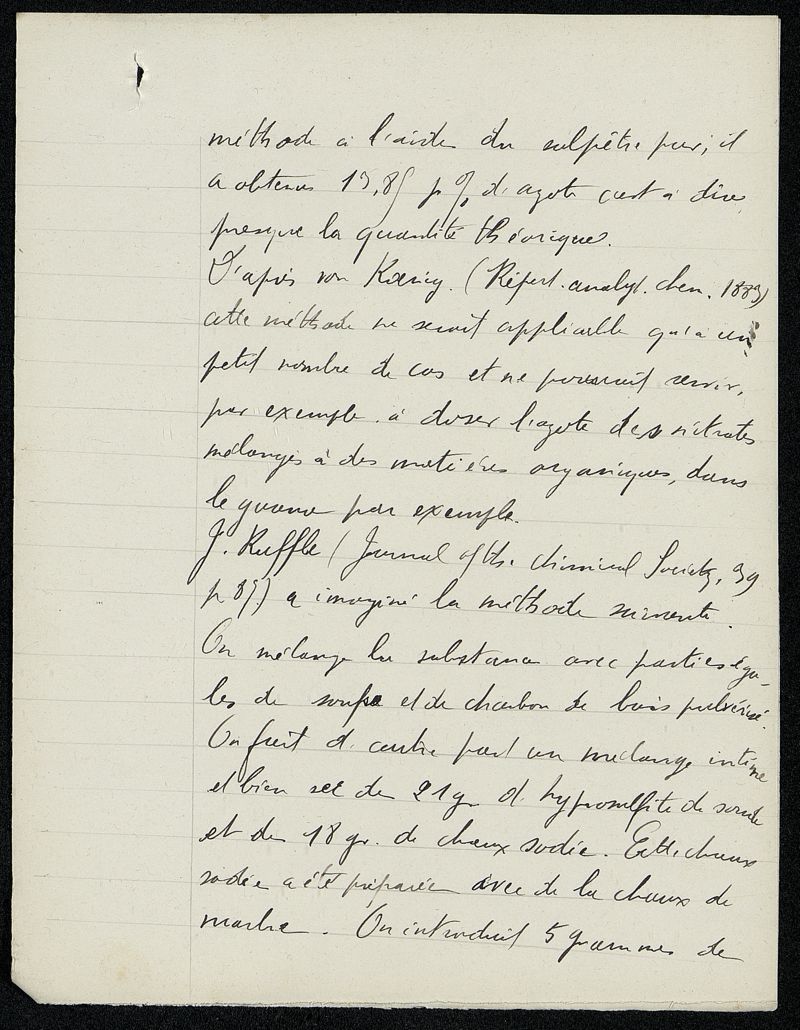 méthode à l'aide du salpêtre pur; il
a obtenu 13,85 p % d'azote c'est à dire
presque la quantité théorique.
D'après von Kœnig. (Répert. analyt. chem. 1883)
cette méthode ne serait applicable qu'à un
petit nombre de cas et ne pourrait servir,
par exemple à doser l'azote des nitrates
mélangés à des matières organiques, dans
le guano par exemple.
J. Ruffle (Journal of the chimical Society, 39
p 87) a imaginé la méthode suivante.
On mélange la substance avec parties éga-
les de soufre et de charbon de bois pulvérisé.
On fait d'autre part un mélange intime
et bien sec de 21 gr d'hyposulfite de soude
et de 18 gr. de chaux sodée. Cette chaux
sodée a été préparée avec de la chaux de
marbre. On introduit 5 grammes de